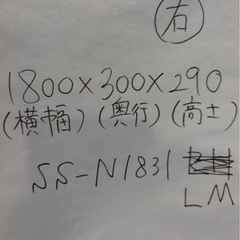 右
1800×300×290
(横幅) (奥行) (高さ)
SS-N1831
LM